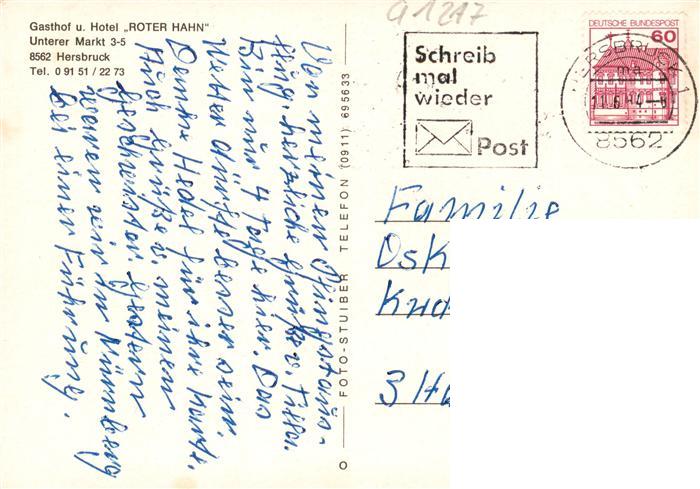 Gasthof u. Hotel „ROTER HAHN"
Unterer Markt 3-5
8562 Hersbruck
Tel. 0 91 51 / 22 73
Von meinem Pfingstaus-
flug, herzliche Grüße v.
Bin nur 4 Tage hier. Das
Wetter dürfte besser sein.
Danke Hedel für ihre Karte.
Auch Grüße v. meinen
Geschwister. Gestern
waren wir in Nürnberg
bei einer Führung.
FOTO-STUIBER TELEFON (0911) 695633
a 1247
Schreib
mal
wieder
Post
DEUTSCHE BUNDESPOST
60
HERSBRUCK 1
8562
Familie
Osk
3 Ha